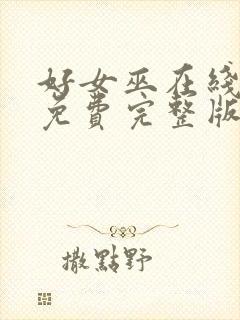 好女巫在线
免费完整版
撒點野